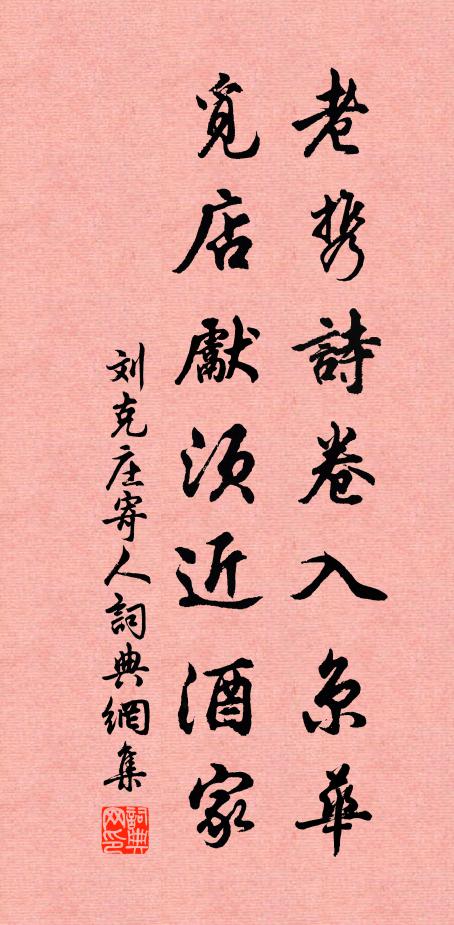 老携詩卷入京華
覓店獻須近酒家
刘克庄寄人詞典網集
詞典
网印